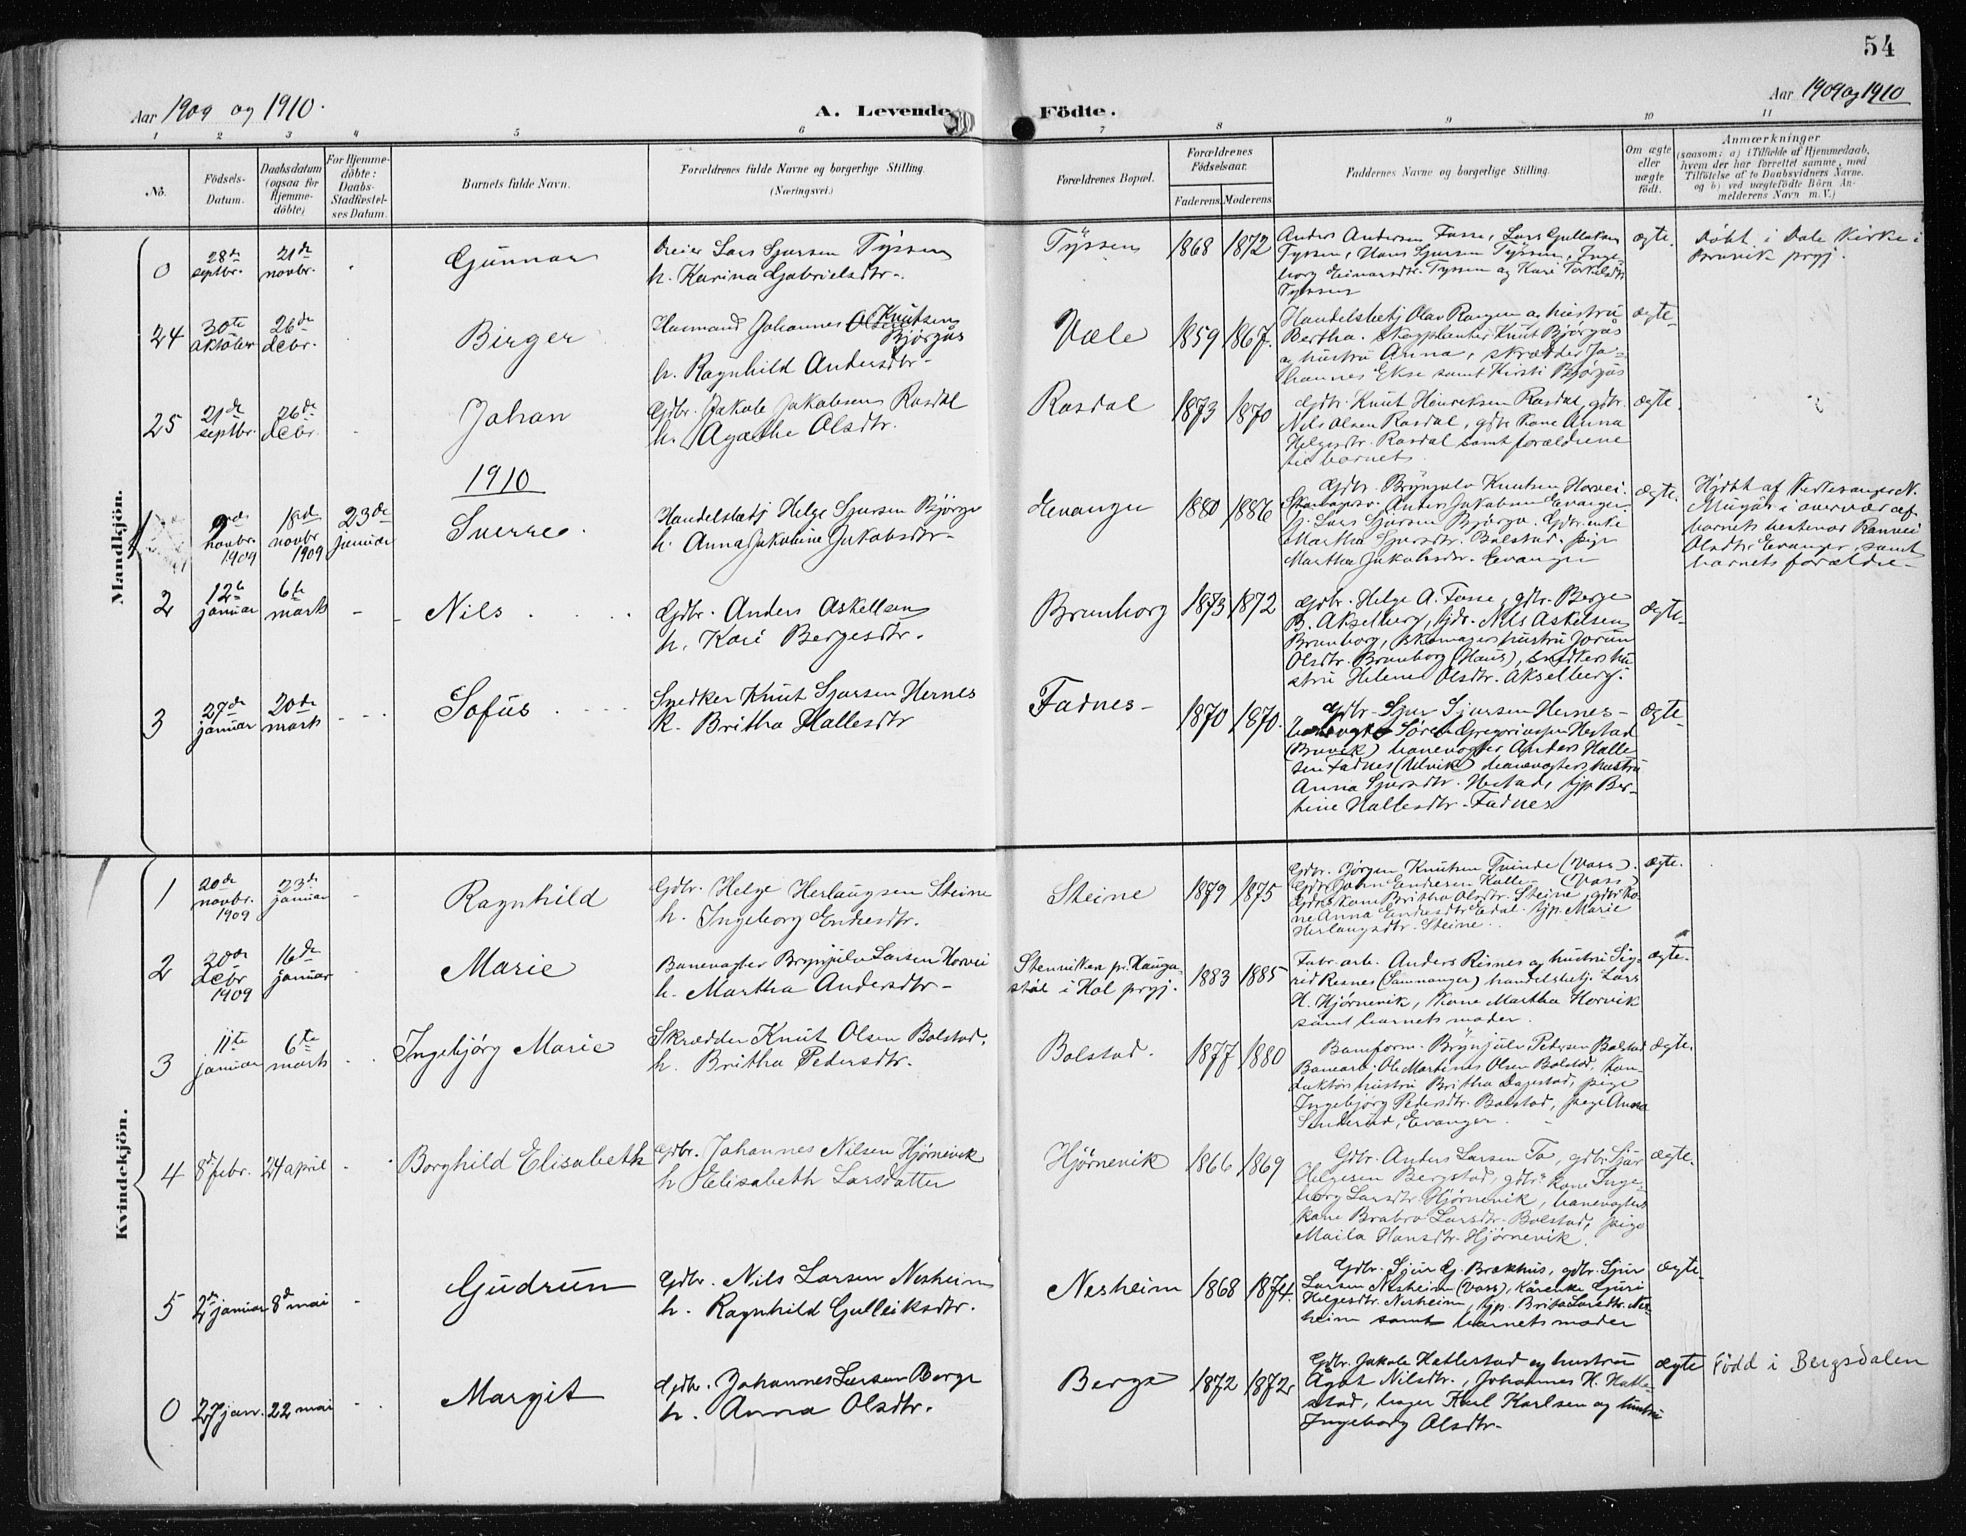 54
Aar 1909 og 1910.
A. Levende Födte.
Aar 1909 og 1910
1 2 3 4 5 6 7 8 9 10 11
No.
Födsels-Datum.
Daabsdatum (ogsaa for Hjemmedöbte)
For Hjemmedöbte: Daabs-Stadfæstelses Datum.
Barnets fulde Navn.
Forældrenes fulde Navne og borgerlige Stilling. (Næringsvei.)
Forældrenes Bopæl.
Forældrenes Födselsaar.
Faderens. Moderens.
Faddernes Navne og borgerlige Stilling.
Om ægte eller uægte födt.
Anmærkninger
(saasom: a) i Tilfælde af Hjemmedaab, hvem der har forrettet samme, med Tilföielse af to Daabsvidners Navne. og b) ved uægtefödte Börn Anmelderens Navn m. V.)
Mandkjön.
0 28de septbr. 21de novbr. Gunnar
Dreier Lars Sjursen Tyssen
h. Karina Gabrielsdtr.
Tyssen 1868 1872
Anders Andersen Fosse, Lars Gullaksen
Tyssen, Hans Sjursen Tyssen, Inge-
borg Einarsdtr. Tyssen og Kari Torkelsdtr.
Tyssen
ægte.
Døbt i Dale Kirke i
Bruvik prgj.
24 30te oktober 26de debr. Birger
Husmand Johannes Knutsen
Bjørgås
h. Ragnhild Andersdtr.
Væle 1859 1867.
Handelsbetj Olav Rongen og hustru
Bertha. Skogplanter Knut Bjørgås
og hustru Anna, skrædder Jo-
hannes Ekse samt Kirsti Bjørgås
ægte
25 21de septbr. 26de debr. Johan
Gdbr. Jakob Jakobsen Rasdal
h. Agathe Olsdtr.
Rasdal 1873 1870
Gdbr Knut Henriksen Rasdal, gdbr.
Nils Olsen Rasdal, gdbr kone Anna
Helgesdtr. Rasdal samt forældrene
til barnet.
ægte.
1910
1 2de novbr. 1909 18de novbr 1909 23de januar Sverre.
Handelsbetj Helge Sjursen Bjørge
h. Anna Jakobine Jakobsdtr.
Evanger 1880 1886
Gdbr. Brynjulv Knutsen Horvei.
Anders Jakobsen Evanger.
Lars Sjursen Bjørge. Gdbr. enke
Martha Sjursdtr. Bolstad. pige
Martha Jakobsdtr. Evanger
ægte.
Hjdbt af
Mugås i overvær af
barnets bestemor Ranvei
Olsdtr. Evanger, samt
barnets forældre
2 12te januar 6te marts - Nils
Gdbr. Anders Askellsen
h. Kari Bergesdtr.
Brunborg 1873 1872
Gdbr. Helge A. Fosse, gdbr. Berge
B. Akselberg, Gdr. Nils Askelsen
Brunborg, skomagerhustru Jorun
Olsdtr. Brunborg (Haus), snedkershu
stru Helene Olsdtr. Akselberg.
ægte
3 27de januar 20de marts - Sofus
Snedker Knut Sjursen Hernes
h. Britha Hallesdtr
Fadnes 1870 1870.
Gdbr. Sjur Sjursen Hernes
Søren Gregoriussen Hestad
(Bruvik) banevogter Anders Halle-
sen Fadnes (Ulvik) banevogters hustru
Anna Sjursdtr. Hestad, tjp. Ber-
tine Hallesdtr. Fadnes
ægte
Kvindekjön.
1 20de novbr. 1909 23de januar Ragnhild
Gdbr. Helge Herlaugsen Steine
h. Ingeborg Endresdtr.
Steine 1879 1875
Gdbr. Jørgen Knutsen Tvinde (Voss).
Gdbr. John Endresen Kolle (Voss)
Gdbrs kone Britha Olsdtr. Steine, gdbr. ko-
ne Anna Endresdtr Edal. tjp. Marie
Herlaugsdtr. Steine.
ægte.
2 30te debr 1909 16de januar Marie
Banevogter Brynjulv Larsen Horvei
h. Martha Andersdtr
Stenviken pr. Hauga-
støl i Hol prgj. 1883 1885
Fabr. arb. Anders Risnes og hustru Sig-
rid Resnes (Samnanger) handelsbetj. Lars
H. Hjørnevik, Kone Martha Horvik
samt barnets moder.
ægte
3 11te januar 6te marts Ingebjörg Marie
Skrædder Knut Olsen Bolstad.
h. Britha Pedersdtr.
Bolstad. 1877 1880
Banform. Brynjulv Petersen Bolstad
Banearb. Ole Martinus Olsen Bolstad, kon-
duktørs hustru Britha Dagestad, pige
Ingebjørg Pedersdtr. Bolstad, pige Anna
Evanger.
ægte.
4 8d febr. 24 april Borghild Elisabeth
Gdbr. Johannes Nilsen Hjørnevik
h Elisabeth Larsdatter
Hjørnevik 1866 1869
Gdbr. Anders Larsen Fo, gdbr. Sjur
Helgesen Bergstad, gdbrs kone Inge-
borg Larsdtr. Hjørnevik, banevogters
kone Brabra Larsdtr. Bolstad, pige
Maila Hansdtr. Hjørnevik.
ægte.
5 2den januar 8d mai Gudrun
Gdbr. Nils Larsen Nesheim
h. Ragnhild Gulleiksdtr.
Nesheim 1868 1874.
Gdbr. Sjur G. Brækhus, gdbr. Sjur
Larsen Nesheim (Voss), Kårenke Guri
Helgesdtr. Nesheim, tjp. Brita Larsdtr. Nes-
heim samt barnets moder
ægte
0 27 jan. 22 mai Margit
Gdbr. Johannes Larsen Berge
h. Anna Olsdtr.
Berge 1872 1872
Gdbr. Jakob Hatlestad og hustru
Ågot Nilsdtr., Johannes H. Hatle-
stad, bager Karl Karlsen og hustru
Ingeborg Olsdtr.
ægte
Född i Bergsdalen